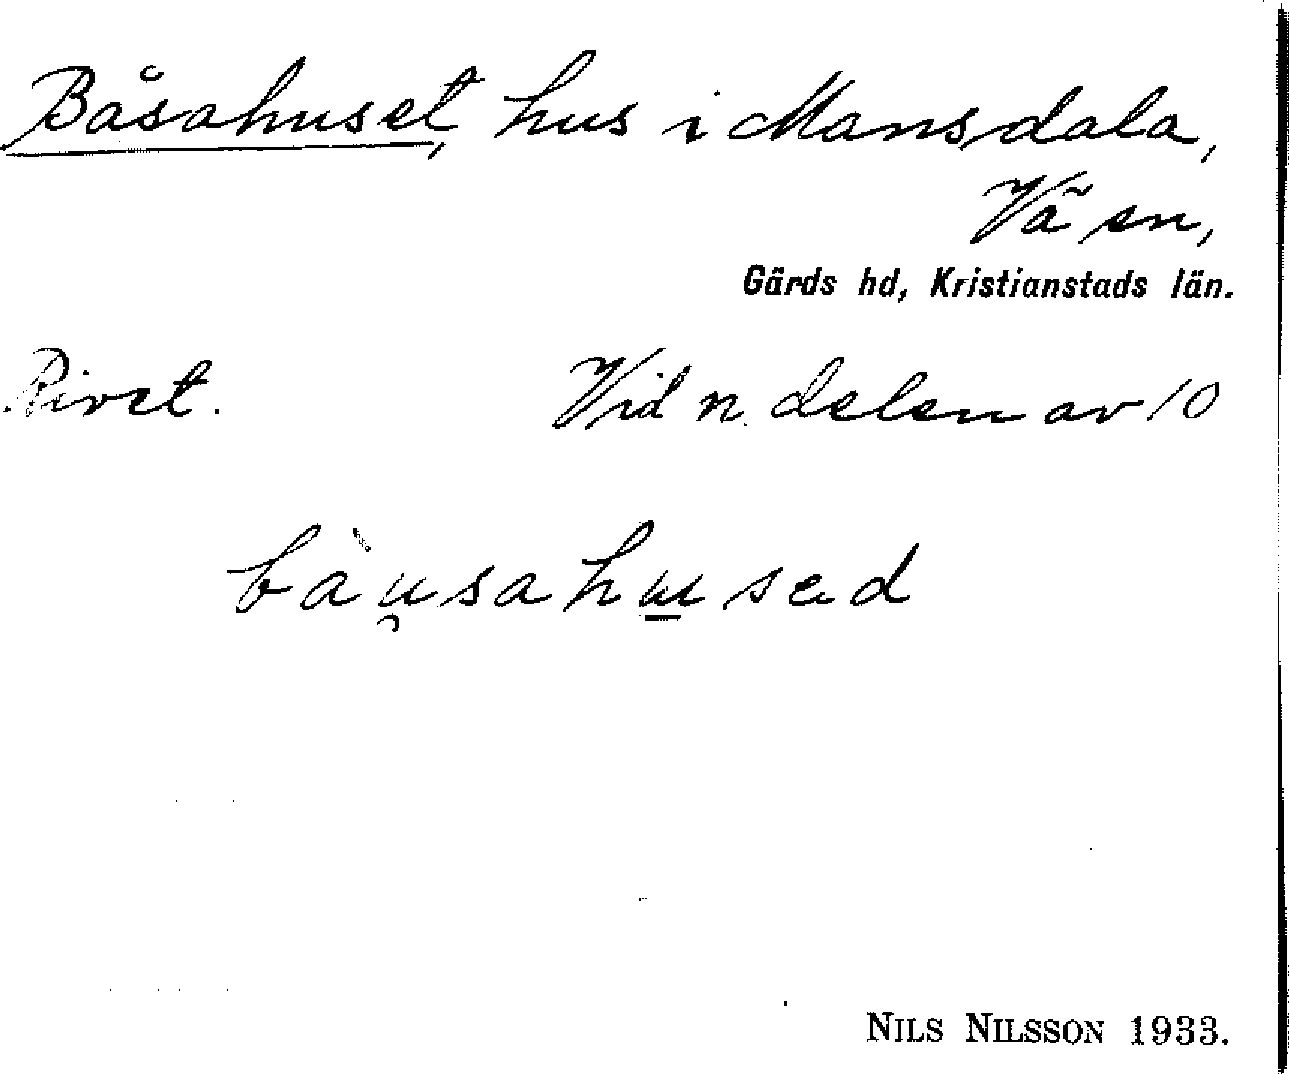 Båsahuset, hus i Mansdala,
Vä sn,
Gärds hd, Kristianstads län.
Rivet. Vid n. delen av 10
bàu̯sahu̲sed
NILS NILSSON 1933.